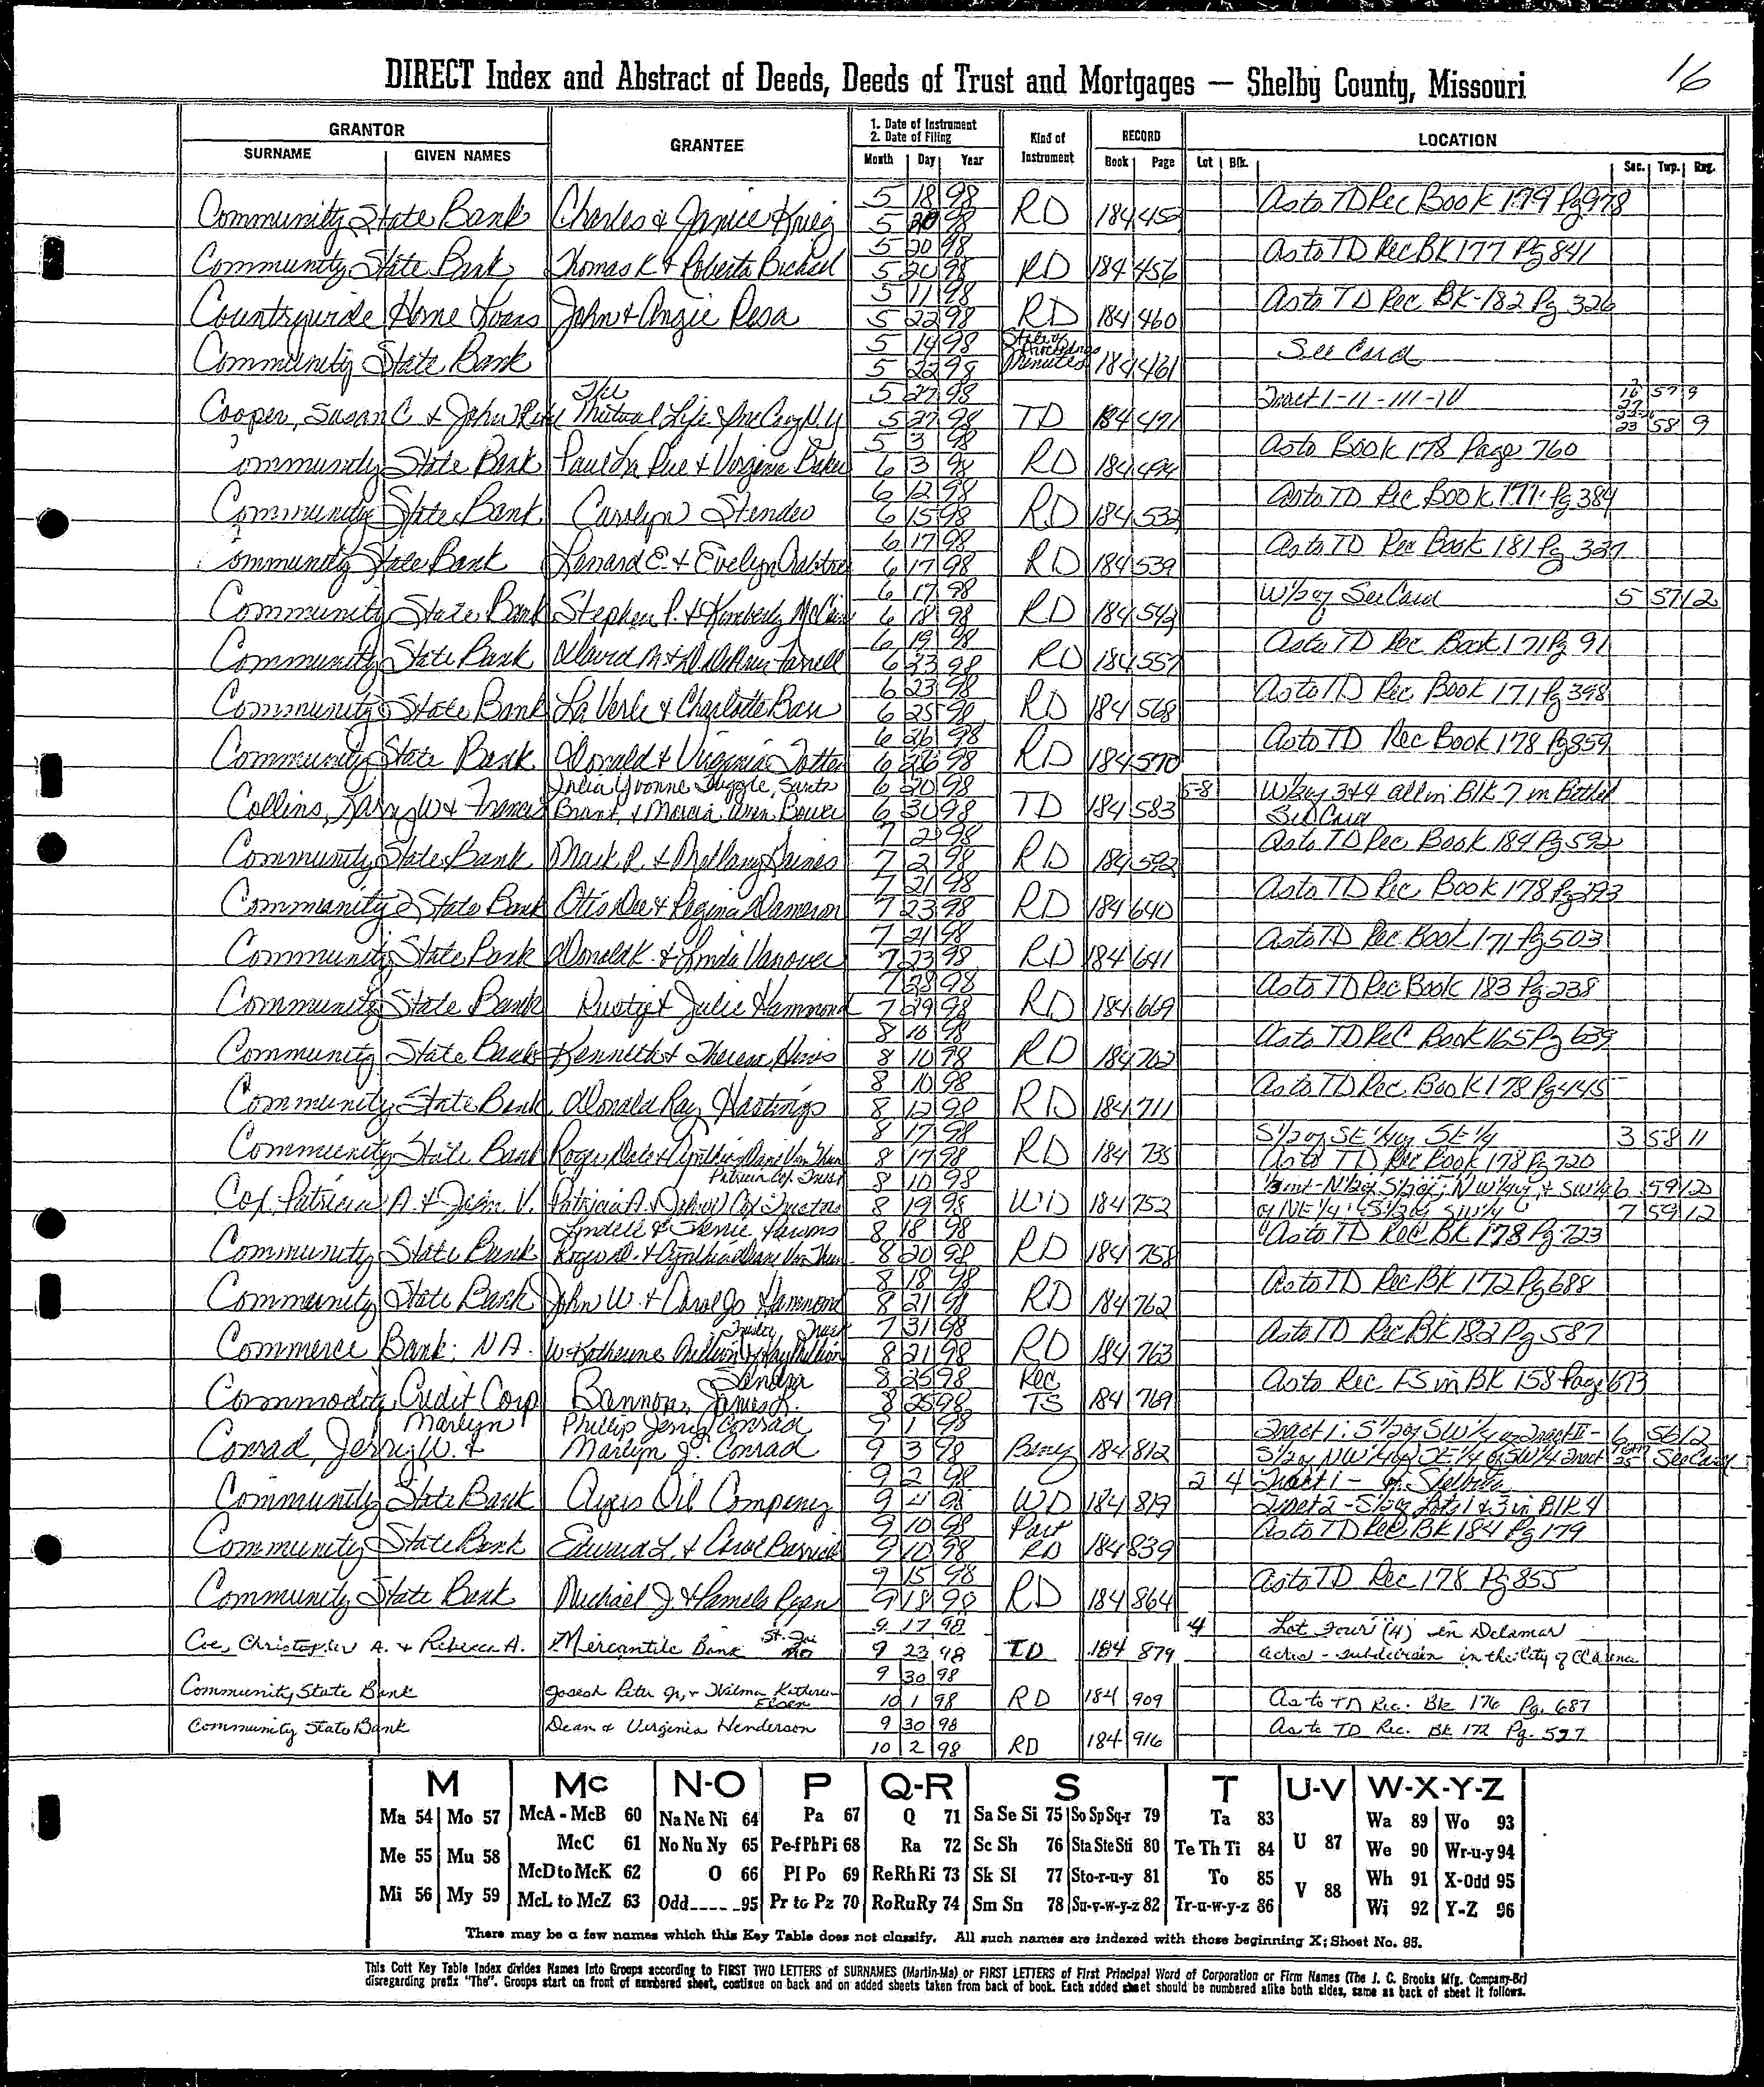 16
DIRECT Index and Abstract of Deeds, Deeds of Trust and Mortgages — Shelby County, Missouri
GRANTOR GRANTEE 1. Date of Instrument 2. Date of Filing Kind of Instrument RECORD LOCATION
SURNAME GIVEN NAMES Month Day Year Book Page Lot Blk. Sec. Twp. Rng.
5 18 98
Community State Bank Charles & Janice Krieg 5 20 98 RD 184 452 As to TD Rec Book 179 Pg 978
5 20 98
Community State Bank Thomas K & Roberta 5 20 98 RD 184 456 As to TD Rec BK 177 Pg 841
5 11 98
Countrywide Home Loans John & Angie Resa 5 22 98 RD 184 460 As to TD Rec BK-182 Pg 326
5 14 98
Community State Bank 5 22 98 Minutes 184 461 See Card
The 5 27 98 Tract I-II-III-IV 57 9
Cooper, Susan C & John Mutual Life Ins Co of N.Y 5 27 98 TD 184 471 23 58 9
5 3 98
ommunity State Bank Paul La Rue & Virginia Baker 6 3 98 RD 184 As to Book 178 Page 760
6 12 98
Community State Bank Carolyn 6 15 98 RD 184 532 As to TD Rec Book 177 Pg 384
6 17 98
ommunity State Bank Lenard E. & Evelyn 6 17 98 RD 184 539 As to TD Rec Book 181 Pg 337
6 17 98
Community State Bank Stephen P. & Kimberly 6 18 98 RD 184 542 W½ of See Card 5 57 12
6 19 98
Community State Bank David 6 23 98 RD 184 557 As to TD Rec Book 171 Pg 91
6 23 98
Community State Bank La Verle & Charlotte 6 25 98 RD 184 568 As to TD Rec Book 171 Pg 398
6 26 98
Community State Bank Donald & Virginia 6 26 98 RD 184 570 As to TD Rec Book 178 Pg 859
Julia Yvonne 6 20 98 5-8 W½ of 3&4 all in Blk 7 in Bethel
Collins, Larry W & Brant, & Marcia Bower 6 30 98 TD 184 583 See Card
7 2 98
Community State Bank Mark R. & 7 2 98 RD 184 592 As to TD Rec Book 184 Pg 592
7 21 98
Community State Bank Otis Dee & Regina Dameron 7 23 98 RD 184 640 As to TD Rec Book 178 Pg
7 21 98
Community State Bank Donald K. & Linda Vanover 7 23 98 RD 184 641 As to TD Rec Book 171 Pg 503
7 28 98
Community State Bank Rusty & Julie Hammond 7 29 98 RD 184 669 As to TD Rec Book 183 Pg 238
8 10 98
Community State Bank Kenneth & Theresa 8 10 98 RD 184 702 As to TD Rec Book 165 Pg 639
8 10 98
Community State Bank Donald Ray Hastings 8 12 98 RD 184 711 As to TD Rec. Book 178 Pg 445
8 17 98 S½ of SE¼ of SE¼ 3 58 11
Community State Bank Roger Dale & Cynthia Diane 8 17 98 RD 184 735 As to TD Rec Book 178 Pg 720
Patricia Cox Trust 8 10 98 6 59 12
Cox Patricia A. & John V. Patricia A. & John V Cox Trustees 8 19 98 WD 184 752 of NE¼; S½ of SW¼ 7 59 12
Lyndell & 8 18 98
Community State Bank Roger D. & Cynthia Diane 8 20 98 RD 184 758 As to TD Rec BK 178 Pg 723
8 18 98
Community State Bank John W. & Carol Jo Hammond 8 21 98 RD 184 762 As to TD Rec BK 172 Pg 688
Trustee Trust 7 31 98
Commerce Bank, NA. W. Katherine 8 21 98 RD 184 763 As to TD Rec BK 182 Pg 587
Sandra 8 25 98 Rec
Commodity Credit Corp Bannon, James 8 25 98 TS 184 769 As to Rec. FS in BK 158 Page 673
Marlyn Phillip Jerry Conrad 9 1 98 Tract 1: S½ of SW¼ 6 56 12
Conrad, Jerry W. & Marlyn J. Conrad 9 3 98 184 812 S½ of NW¼ of SE¼ of SW¼ See Card
9 2 98 2 4 Tract 1 - of Shelbina
Community State Bank Ayers Oil Company 9 4 98 WD 184 819 Tract 2 - S½ of Lots 1 & 3 in Blk 4
9 10 98 Part
Community State Bank Edward L. & Carol 9 10 98 RD 184 839 As to TD Rec BK 184 Pg 179
9 15 98
Community State Bank Michael J. & Pamela Ryan 9 18 98 RD 184 864 As to TD Rec 178 Pg 855
9 17 98 4 Lot Four (4) in Delamar
Coe, Christopher A. & Rebecca A. Mercantile Bank 9 23 98 TD 184 879 acres - subdivision in the City of Clarence
9 30 98
Community State Bank Joseph Peter Jr, & Wilma Katherine 10 1 98 RD 184 909 As to TD Rec. Bk 176 Pg. 687
Community State Bank Dean & Virginia Henderson 9 30 98 As to TD Rec. Bk 172 Pg. 527
10 2 98 RD 184 916
M Mc N-O P Q-R S T U-V W-X-Y-Z
Ma 54 Mo 57 McA - McB 60 Na Ne Ni 64 Pa 67 Q 71 Sa Se Si 75 So Sp Sq-r 79 Ta 83 Wa 89 Wo 93
Me 55 Mu 58 McC 61 No Nu Ny 65 Pe-f Ph Pi 68 Ra 72 Sc Sh 76 Sta Ste Sti 80 Te Th Ti 84 U 87 We 90 Wr-u-y 94
McD to McK 62 O 66 Pl Po 69 Re Rh Ri 73 Sk Sl 77 Sto-r-u-y 81 To 85 V 88 Wh 91 X-Odd 95
Mi 56 My 59 McL to McZ 63 Odd_____95 Pr to Pz 70 Ro Ru Ry 74 Sm Sn 78 Su-v-w-y-z 82 Tr-u-w-y-z 86 Wi 92 Y-Z 96
There may be a few names which this Key Table does not classify. All such names are indexed with those beginning X; Sheet No. 95.
This Cott Key Table Index divides Names Into Groups according to FIRST TWO LETTERS of SURNAMES (Martin-Ma) or FIRST LETTERS of First Principal Word of Corporation or Firm Names (The J. C. Brooks Mfg. Company-Br)
disregarding prefix "The". Groups start on front of numbered sheet, continue on back and on added sheets taken from back of book. Each added sheet should be numbered alike both sides, same as back of sheet it follows.